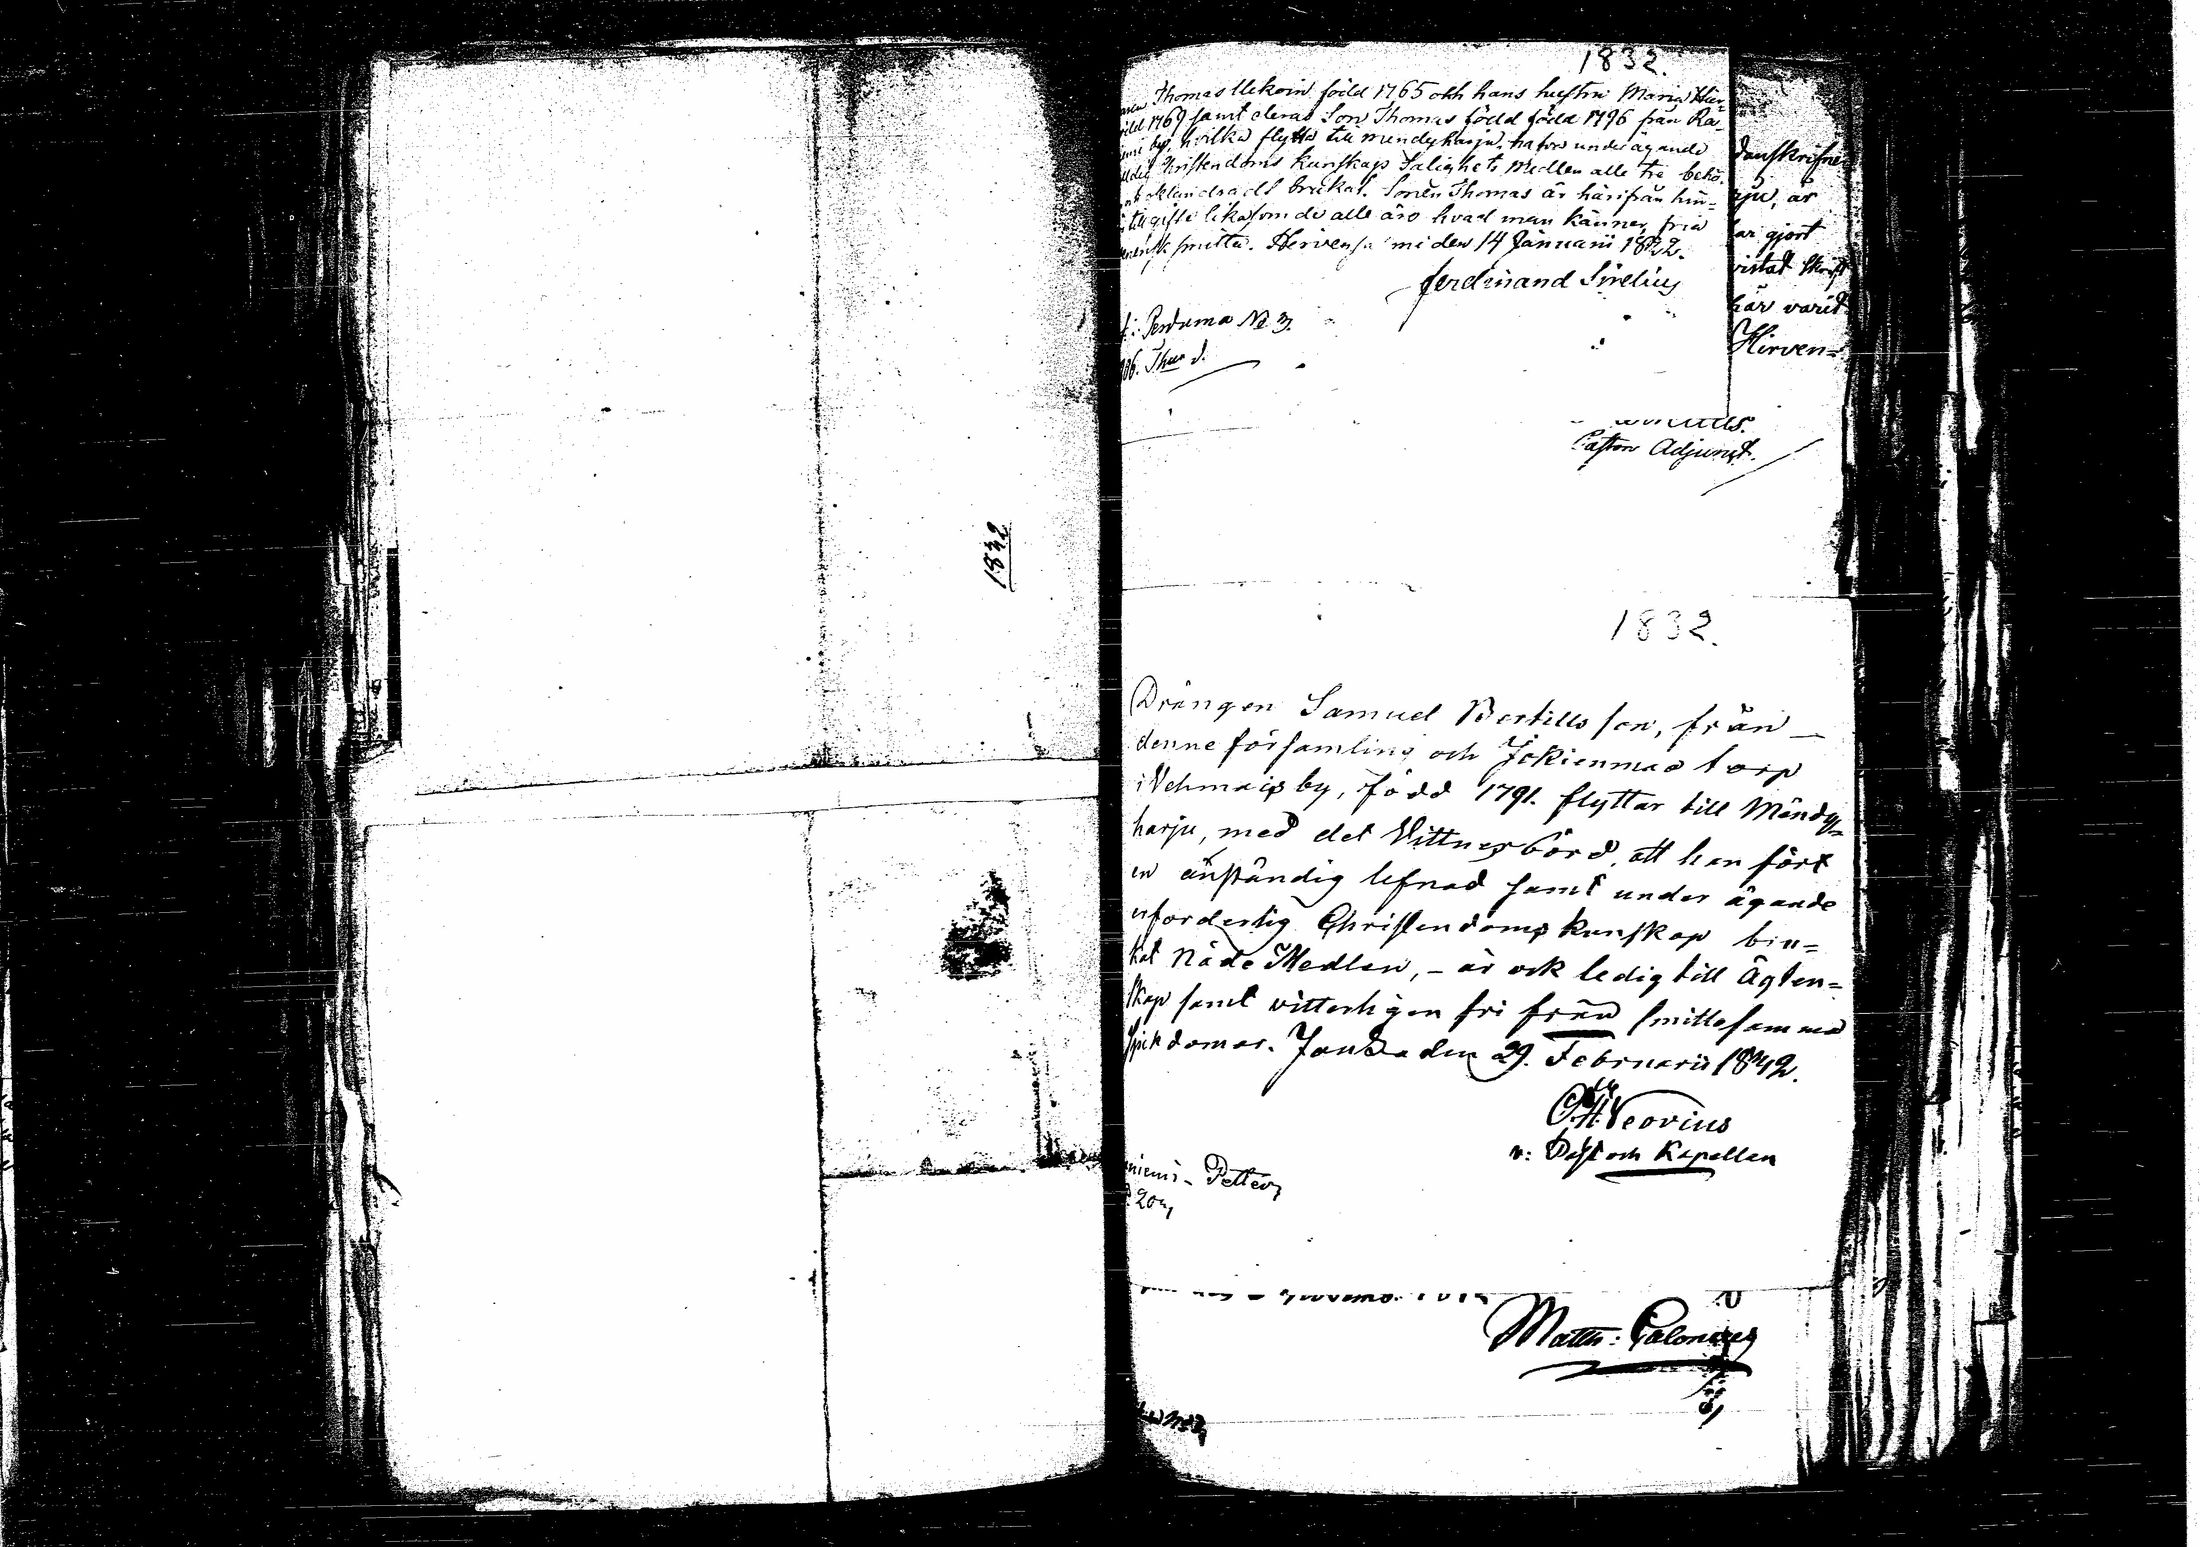 1832
1832.
Thomas Ukoin född 1765 och hans hustru Maria
1769 samt deras Son Thomas född född 1796 från Rä-
by, hvilka flytta till Mendyharju, hafva under ägande
Christendoms kunskap Salighets Medlen alle tre behö-
oklandradt brukat. Sonen Thomas är härifrån hin-
till gifte likasom de alle äro hvad man känner fria
smitta. Hirvensalmi den 14 Januarii 1832.
Ferdinand Sirelius
Pertuma No 3.
danskrifne
rju, är
har gjort
vistat
här varit
Hirven=
Pastors Adjunct.
1832.
Drängen Samuel Bertillsson, från
denne församling och Jokienmaa torp
i Vehmais by, född 1791. flyttar till Mändy=
harju, med det Vittnesbörd, att han fört
en anständig lefnad samt under ägande
erforderlig Christendoms kunskap bru=
kat Nåde Medlen, – är ock ledig till Ägten=
skap samt vitterligen fri från smittosamma
sjukdomar. Joutsa den 29. Februarii 1832.
v: Past och Kapellan
niemi - Petter
Matth: Calonius